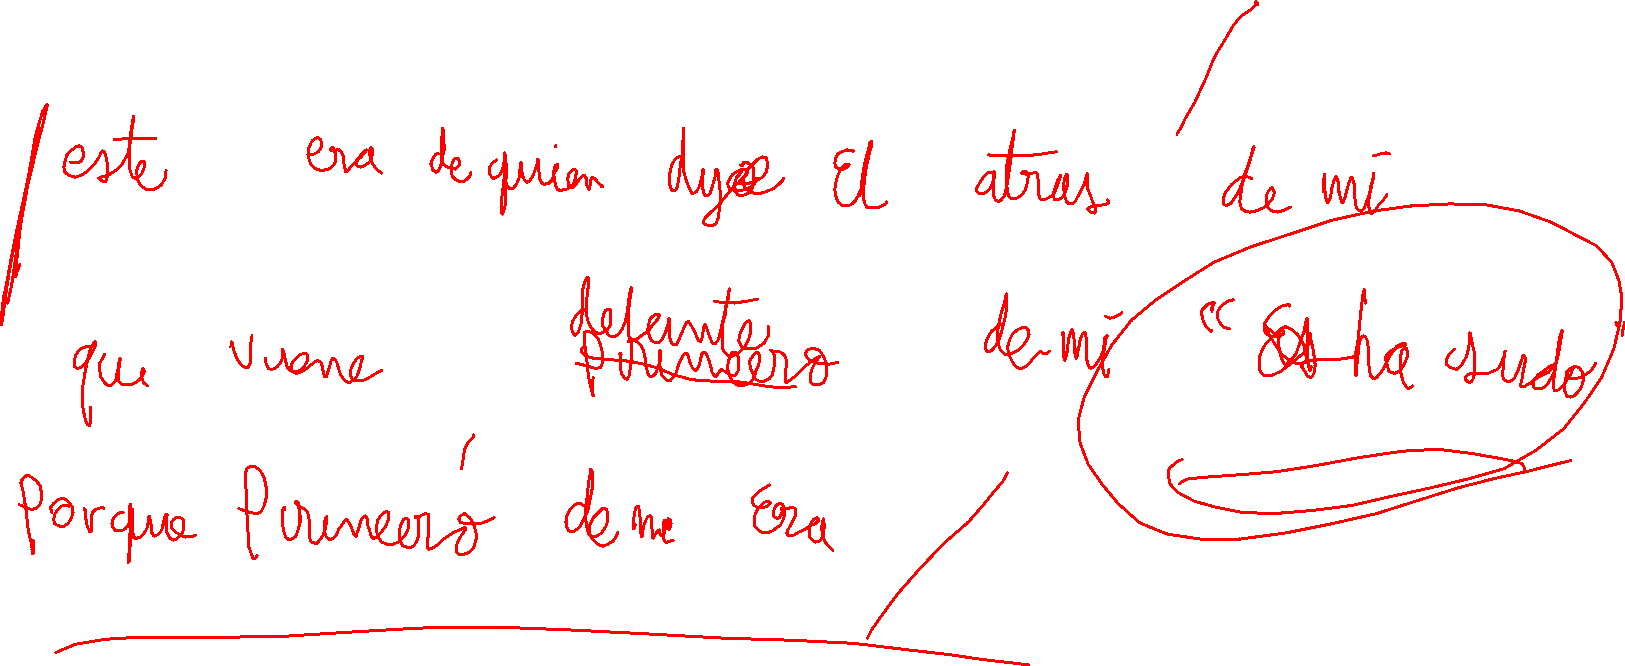 este era de quien dije El atras de mi
que viene delante de mi “Es ha sido
Porque Primero de mi Era